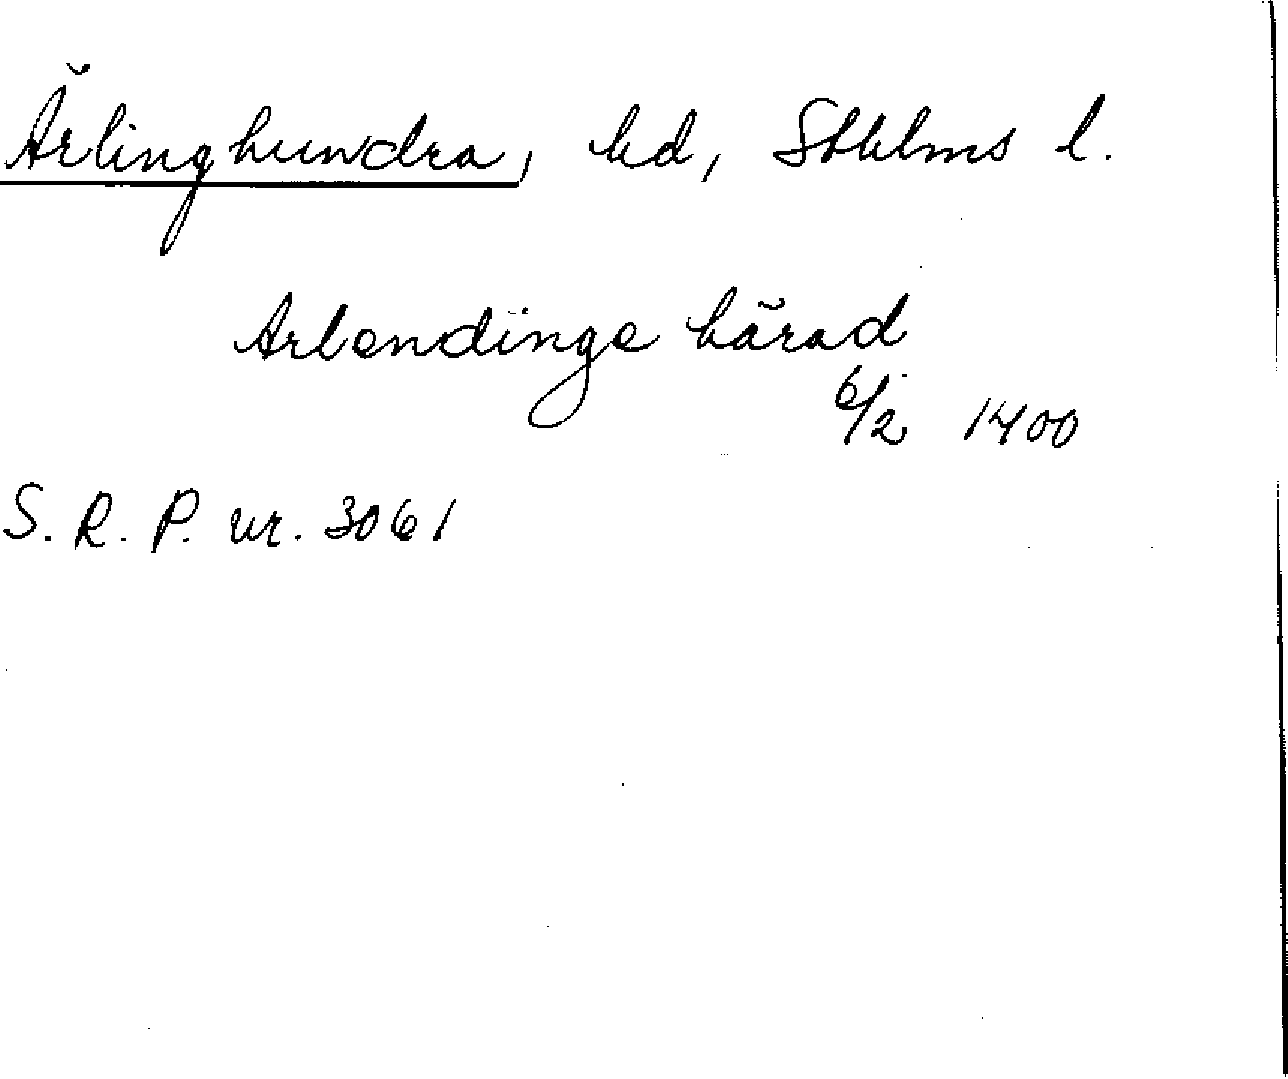 Ärlinghundra, hd, Sthlms l.
Arlendinge härad
6/2 1400
S. R. P. nr. 3061